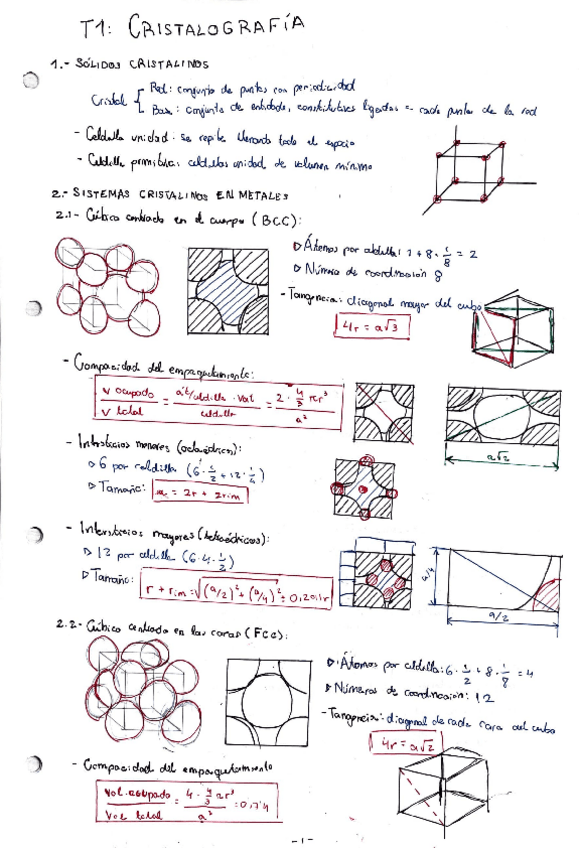 T1: CRISTALOGRAFÍA
1.- SÓLIDOS CRISTALINOS
Cristal { Red: conjunto de puntos con periodicidad
Base: conjunto de entidades constitutivas ligadas a cada punto de la red
- Celdilla unidad: se repite llenando todo el espacio
- Celdilla primitiva: celdillas unidad de volumen mínimo
2.- SISTEMAS CRISTALINOS EN METALES
2.1- Cúbico centrado en el cuerpo (BCC):
▷ Átomos por celdilla: 1 + 8 · 1/8 = 2
▷ Número de coordinación 8
- Tangencia: diagonal mayor del cubo
4r = a√3
- Compacidad del empaquetamiento:
V ocupado / V total = at/celdilla · Vat / celdilla = 2 · 4/3 πr³ / a²
a√2
- Intersticios menores (octaédricos):
▷ 6 por celdilla (6 · 1/2 + 12 · 1/4)
▷ Tamaño: a = 2r + 2rim
- Intersticios mayores (tetraédricos):
▷ 12 por celdilla (6 · 4 · 1/2)
▷ Tamaño: r + rim = √(a/2)² + (a/4)² = 0,291r
a/4
a/2
2.2- Cúbico centrado en las caras (FCC):
▷ Átomos por celdilla: 6 · 1/2 + 8 · 1/8 = 4
▷ Números de coordinación: 12
- Tangencia: diagonal de cada cara del cubo
4r = a√2
- Compacidad del empaquetamiento
Vol. ocupado / Vol total = 4 · 4/3 πr³ / a² = 0,74
- 1 -